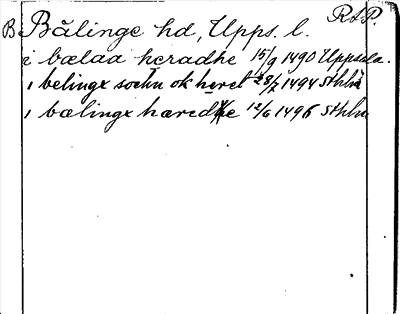 RAP.
B Bälinge hd, Upps. l.
i bælaa heradhe 15/9 1490 Uppsala.
i belingx sochn ok heret 28/7 1494 Sthlm
i bælingx hæredhe 12/6 1496 Sthlm